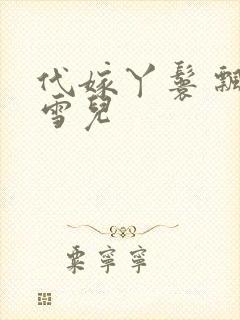 代嫁丫鬟 飄
雪兒
粟寧寧